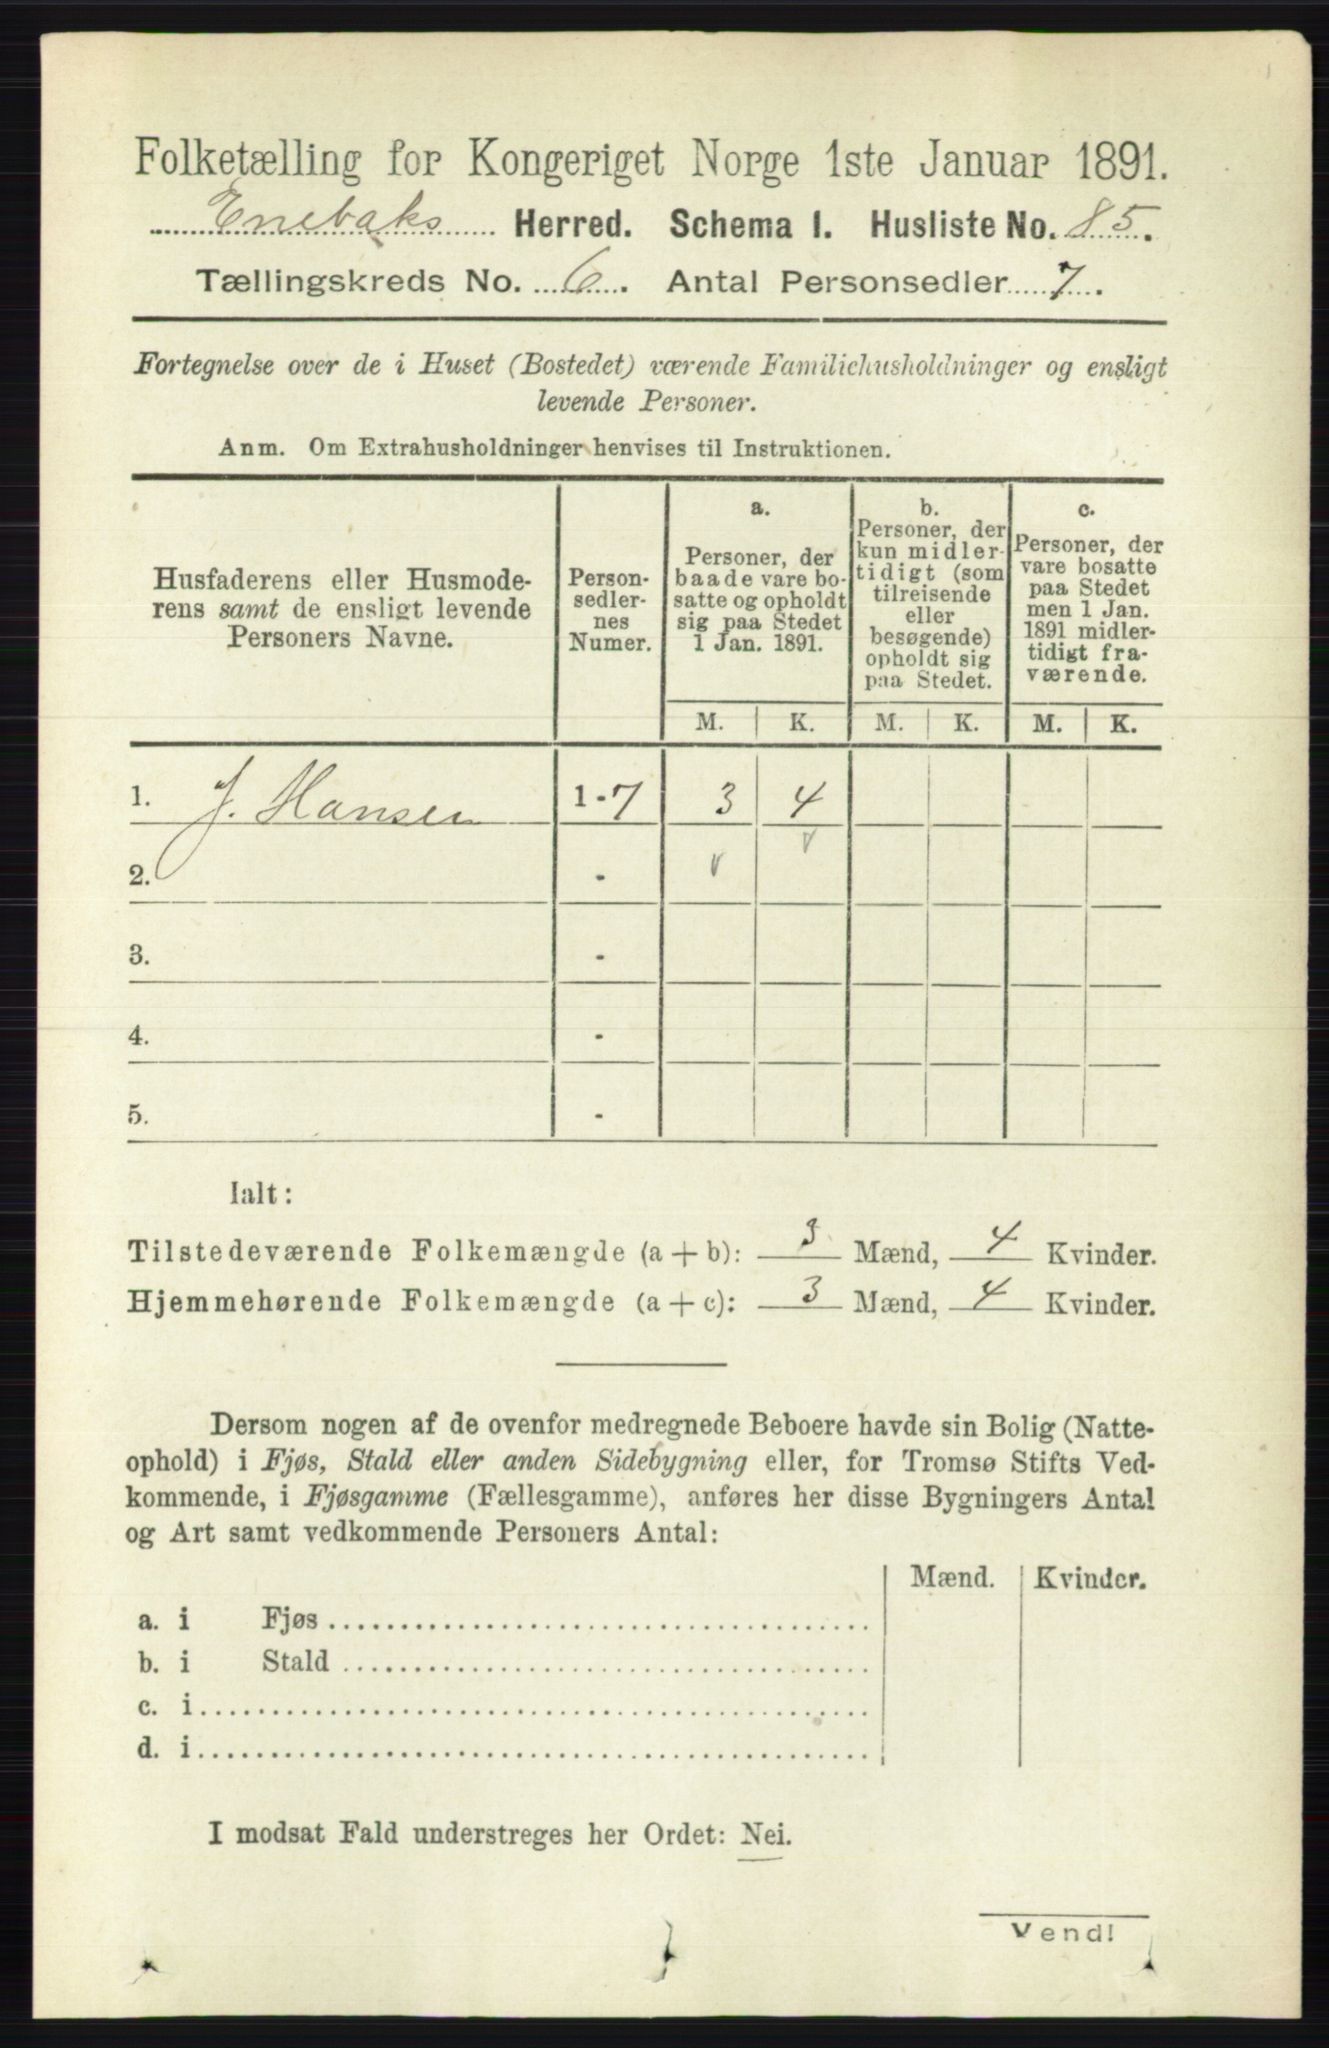 Folketælling for Kongeriget Norge 1ste Januar 1891.
Enebaks Herred. Schema I. Husliste No. 85.
Tællingskreds No. 6. Antal Personsedler 7.
Fortegnelse over de i Huset (Bostedet) værende Familiehusholdninger og ensligt
levende Personer.
Anm. Om Extrahusholdninger henvises til Instruktionen.
Husfaderens eller Husmode-
rens samt de ensligt levende
Personers Navne.
Person-
sedler-
nes
Numer.
a.
Personer, der
baade vare bo-
satte og opholdt
sig paa Stedet
1 Jan. 1891.
b.
Personer, der
kun midler-
tidigt (som
tilreisende
eller
besøgende)
opholdt sig
paa Stedet.
c.
Personer, der
vare bosatte
paa Stedet
men 1 Jan.
1891 midler-
tidigt fra-
værende.
M. K. M. K. M. K.
1. J. Hansen 1-7 3 4
2. -
3. -
4. -
5. -
Ialt:
Tilstedeværende Folkemængde (a + b): 3 Mænd, 4 Kvinder.
Hjemmehørende Folkemængde (a + c): 3 Mænd, 4 Kvinder.
Dersom nogen af de ovenfor medregnede Beboere havde sin Bolig (Natte-
ophold) i Fjøs, Stald eller anden Sidebygning eller, for Tromsø Stifts Ved-
kommende, i Fjøsgamme (Fællesgamme), anføres her disse Bygningers Antal
og Art samt vedkommende Personers Antal:
Mænd. Kvinder.
a. i Fjøs
b. i Stald
c. i
d. i
I modsat Fald understreges her Ordet: Nei.
Vend!